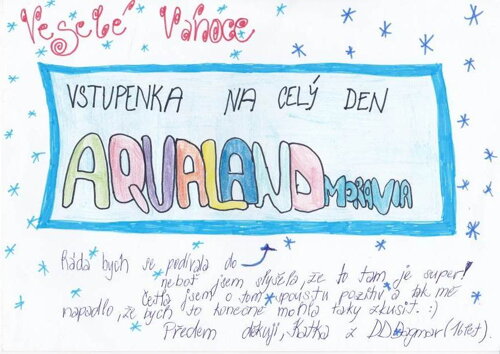 Veselé Vánoce
VSTUPENKA NA CELÝ DEN
AQUALAND MORAVIA
Ráda bych se podívala do
neboť jsem slyšela, že to tam je super!
Četla jsem o tom spoustu pozitiv a tak mě
napadlo, že bych to konečně mohla taky zkusit. :)
Předem děkuji, Katka z DD Dagmar (16let).